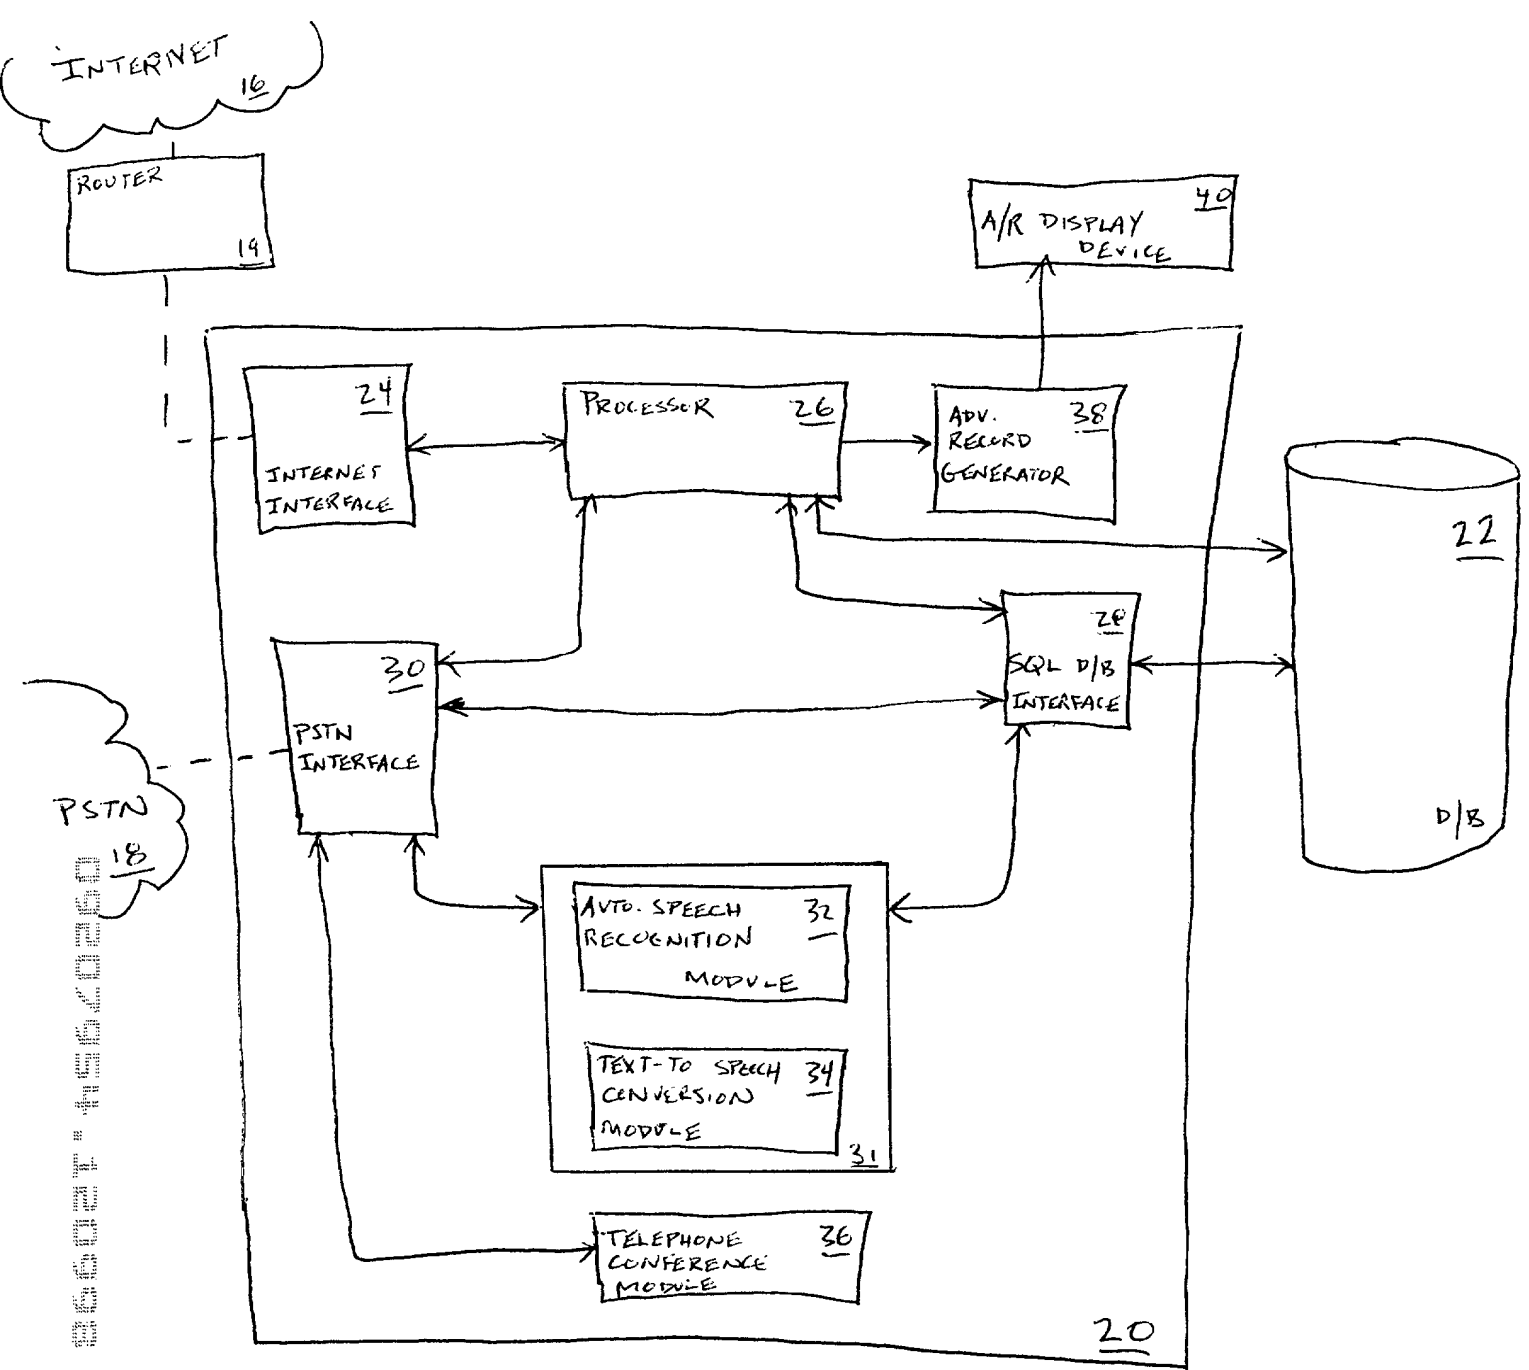 INTERNET
16
ROUTER
19
40
A/R DISPLAY
DEVICE
24
INTERNET
INTERFACE
PROCESSOR 26
ADV. 38
RECORD
GENERATOR
22
D/B
28
SQL D/B
INTERFACE
30
PSTN
INTERFACE
PSTN
18
AUTO. SPEECH 32
RECOGNITION
MODULE
TEXT-TO SPEECH 34
CONVERSION
MODULE
31
TELEPHONE 36
CONFERENCE
MODULE
20